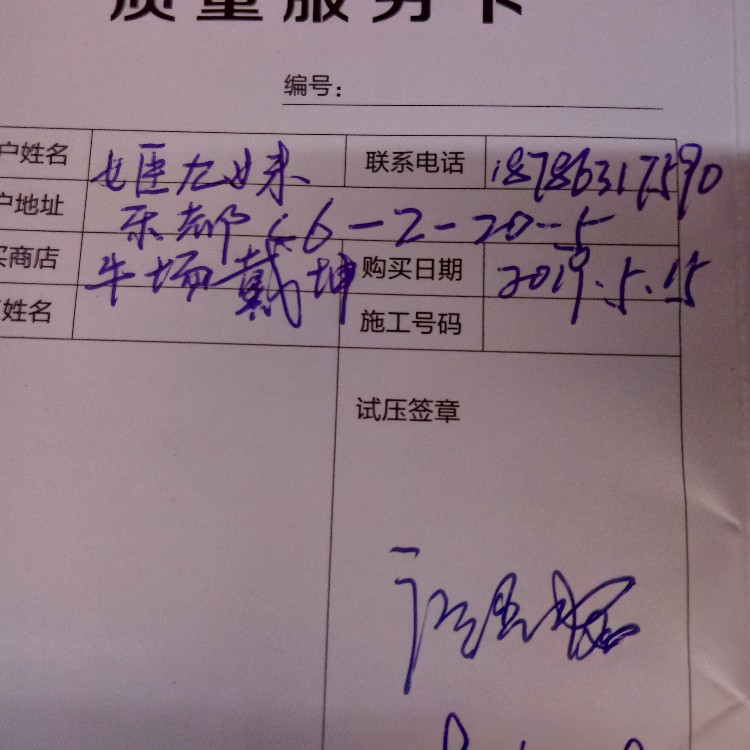 质量服务卡
编号：
户姓名 姬九妹 联系电话 18786317590
户地址 东都 C6-2-20-5
买商店 牛场戴坤 购买日期 2019.5.15
姓名 施工号码
试压签章